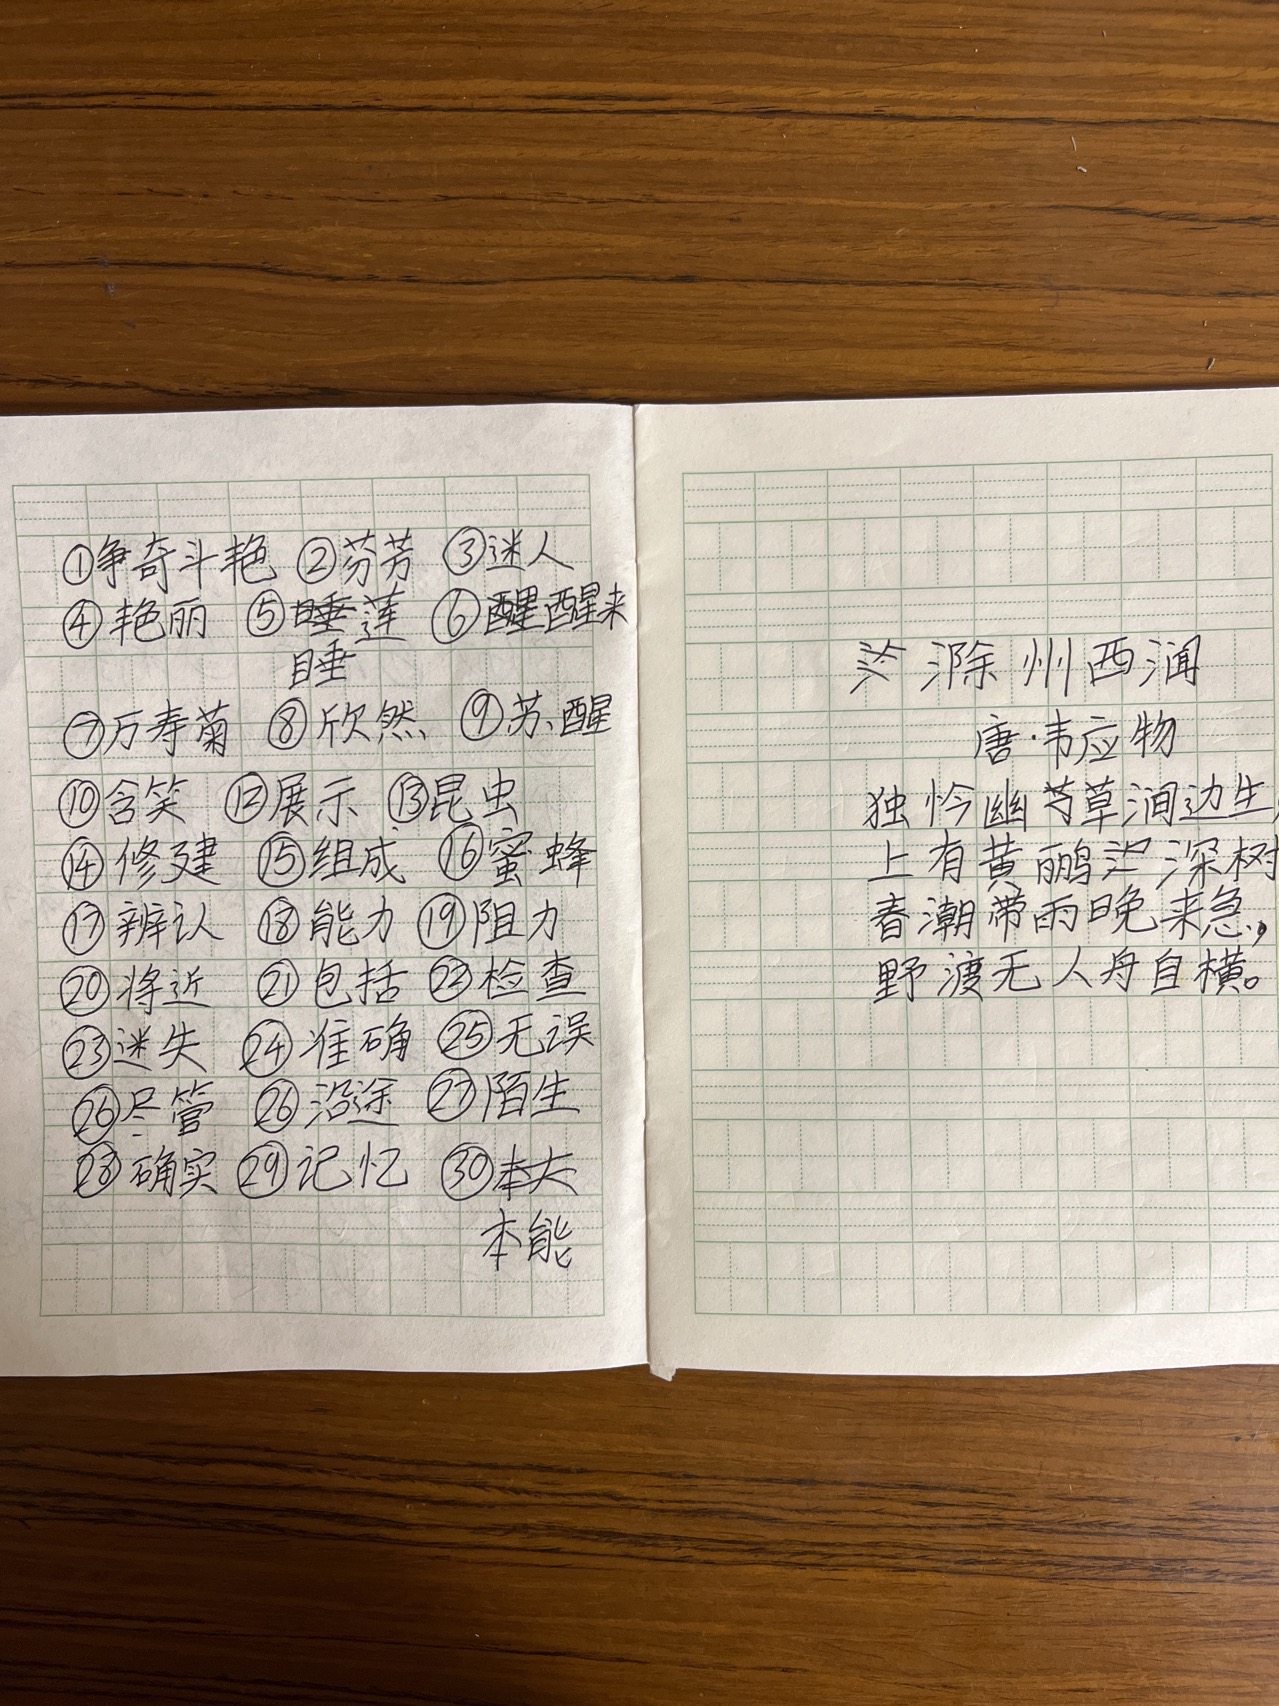 ①争奇斗艳 ②芬芳 ③迷人
④艳丽 ⑤睡莲 ⑥醒醒来
睡
⑦万寿菊 ⑧欣然 ⑨苏醒
⑩含笑 ⑫展示 ⑬昆虫
⑭修建 ⑮组成 ⑯蜜蜂
⑰辨认 ⑱能力 ⑲阻力
⑳将近 ㉑包括 ㉒检查
㉓迷失 ㉔准确 ㉕无误
㉖尽管 ㉖沿途 ㉗陌生
㉘确实 ㉙记忆 ㉚本大
本能
滁州西涧
唐·韦应物
独怜幽草涧边生,
上有黄鹂深树
春潮带雨晚来急,
野渡无人舟自横。